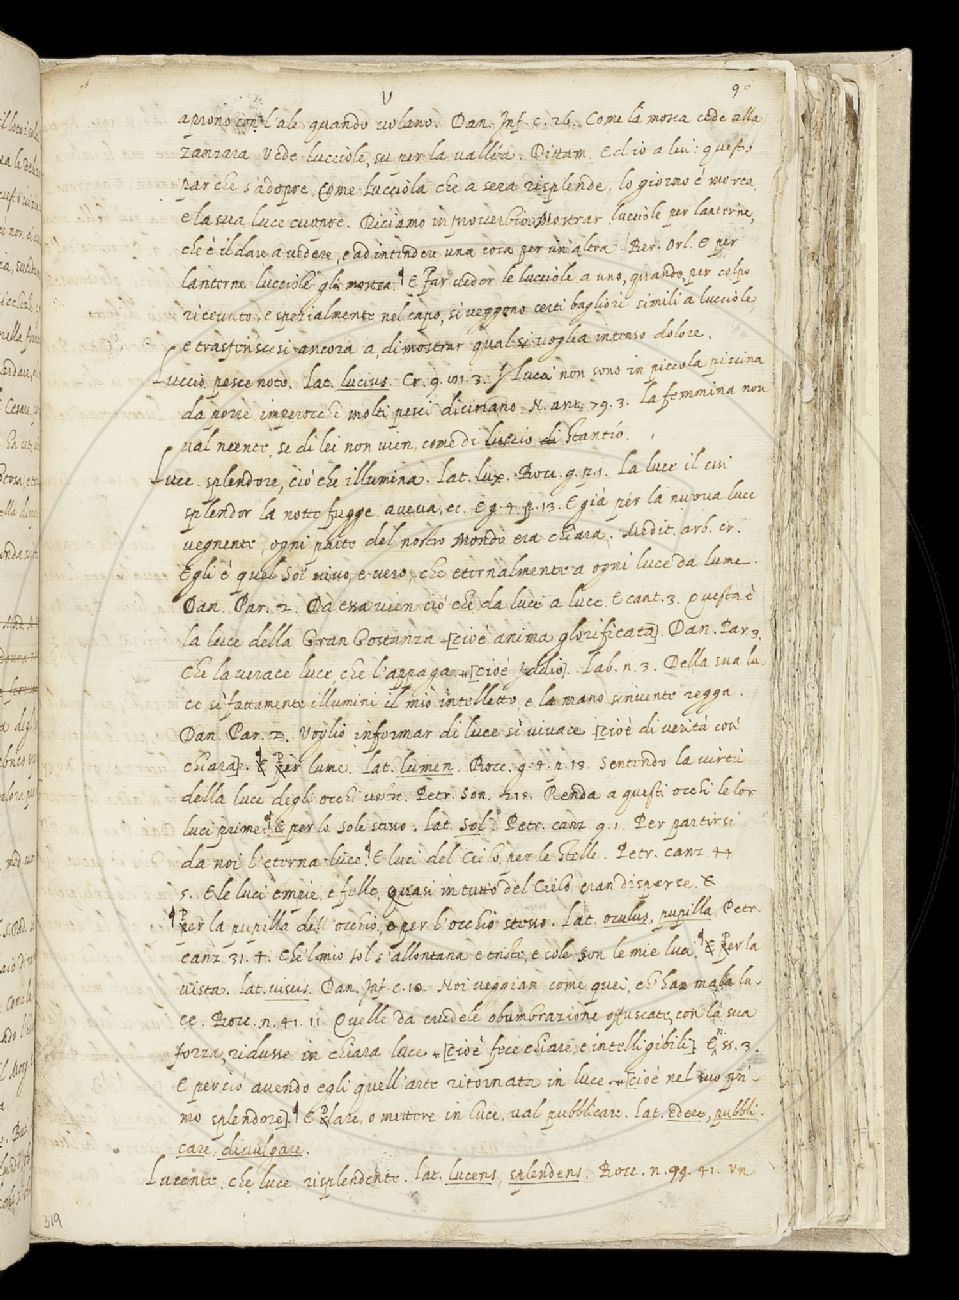 V 90
aprono con l'ale quando volano. Dan. Inf. c. 26. Come la mosca cede alla
zanzara Vede lucciole, su per la vallea. Dittam. Ed io a lui: questo
par che s'adopre, Come lucciola che a sera risplende, lo giorno è morta,
e la sua luce cuopre. Diciamo in proverbio Mostrar lucciole per lanterne,
che è il dare a vedere, e ad intendere una cosa per un'altra. Ber. Orl. E per
lanterne lucciole gli mostra. E Far veder le lucciole a uno, quando, per colpo
ricevuto, e spezialmente nel capo, si veggono certi bagliori simili a lucciole,
e trasferiscesi ancora a dimostrar qual si voglia intenso dolore.
Luccio, pesce noto. Lat. lucius. Cr. 9. 81. 3. I Lucci non sono in piccola piscina
da porre imperocc'è molti pesci diciriano. N. ant. 79. 3. La femmina non
val neente, se di lei non vien, come di luscio di Stantío.
Luce. splendore, ciò che illumina. Lat. lux. Bocc. g. p. 1. La luce il cui
splendor la notte fugge aveva, ec. E g. 4. p. 13. E già per la nuova luce
vegnente, ogni parte del nostro Mondo era chiara. Medit. arb. cr.
Egli è quel Sol vivo, e vero, che eternalmente a ogni luce da lume.
Dan. Par. 2. Da essa vien ciò che da luce a luce. E cant. 3. Questa è
la luce della Gran Gostanza [cioè anima glorificata]. Dan. Par. 3.
Che la verace luce, che l'appaga [cioè Iddio]. Lab. n. 3. Della sua lu-
ce sì fattamente illumini il mio intelletto, e la mano scrivente regga.
Dan. Par. 2. Voglio informar di luce sì vivace [cioè di verità così
chiara]. E Per lume. Lat. lumen. Bocc. g. 4. p. 13. Sentendo la virtù
della luce degli occhi vostri. Petr. Son. 215. Renda a questi occhi le lor
luci prime. E per lo Sole stesso. Lat. Sol. Petr. canz. 9. 1. Per partirsi
da noi l'eterna luce. E luci del Cielo, per le Stelle. Petr. canz. 44
5. E le luci empie, e felle, Quasi in tutto del Cielo eran disperse. E
per la pupilla dell'occhio, e per l'occhio stesso. Lat. oculus, pupilla. Petr.
canz. 31. 4. Che'l mio sol s'allontana e triste, e sole Son le mie luci. E Per la
vista. Lat. visus. Dan. Inf. c. 10. Noi veggian come quei, ch'han mala lu-
ce. Bocc. n. 41. 11. Quelle da crudele obumbrazione offuscate, con la sua
forza, ridusse in chiara luce [cioè fece chiare, e intelligibili] E n. 55. 3.
E perciò avendo egli quell'arte ritornata in luce [cioè nel suo pri-
mo splendore]. E Dare, o mettere in luce, val pubblicare. Lat. edere, pubbli-
care, divulgare.
Lucente, che luce, risplendente. Lat. lucens, splendens. Bocc. n. 99. 41. Un
319